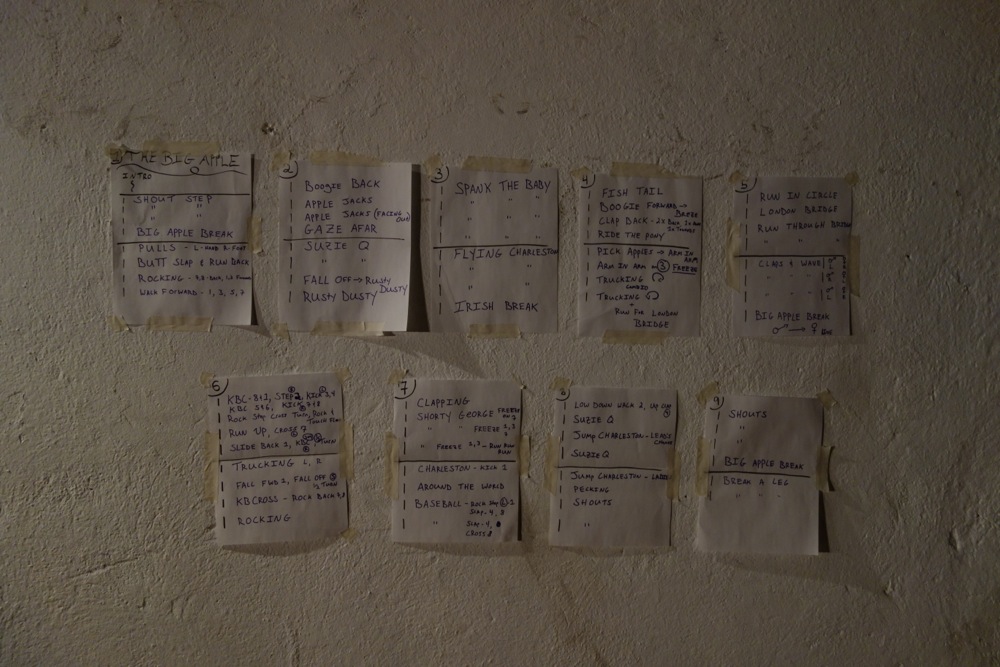 THE BIG APPLE
INTRO
SHOUT STEP
" "
" "
BIG APPLE BREAK
PULLS - L-HAND R-FOOT
BUTT SLAP & RUN BACK
ROCKING -
WALK FORWARD - 1, 3, 5, 7
2
BOOGIE BACK
APPLE JACKS
APPLE JACKS (FACING OUT)
GAZE AFAR
SUZIE Q
" "
FALL OFF → RUSTY DUSTY
RUSTY DUSTY
3
SPANK THE BABY
" " "
" " "
" " "
FLYING CHARLESTON
" "
" "
IRISH BREAK
4
FISH TAIL
BOOGIE FORWARD →
CLAP BACK - 2X BACK,
RIDE THE PONY
PICK APPLES → ARM IN ARM
ARM IN ARM → 3 FREEZE
TRUCKING
TRUCKING
+
RUN FOR LONDON
BRIDGE
5
RUN IN CIRCLE
LONDON BRIDGE
RUN THROUGH BRIDGE
" " "
CLAPS & WAVE
" " "
" " "
BIG APPLE BREAK
♂ → ♀
6
KBC - 8+1, STEP 2, KICK 3,4
KBC 5+6, KICK 7+8
ROCK STEP CROSS TURN, ROCK &
RUN UP, CROSS 7
SLIDE BACK 3, KBC TURN
TRUCKING L, R
FALL FWD 2, FALL OFF
½ TURN
KB CROSS - ROCK BACK 4,8
ROCKING
7
CLAPPING
SHORTY GEORGE FREEZE ON 7
" " FREEZE 1,3
" FREEZE 1,3 - RUN RUN RUN
CHARLESTON - KICK 1
AROUND THE WORLD
BASEBALL - ROCK STEP
SLAP - 4, 8
" SLAP - 4,
CROSS 8
8
LOW DOWN WALK 2, UP
SUZIE Q
JUMP CHARLESTON - LEADS
SUZIE Q
JUMP CHARLESTON - LADIES
PECKING
SHOUTS
"
9
SHOUTS
"
"
BIG APPLE BREAK
BREAK A LEG
" " "